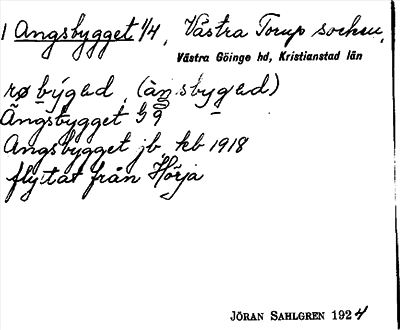 1 Ängsbygget 1/4, Västra Torup socken,
Västra Göinge hd, Kristianstad län
rø býgəd (àŋsbygəd)
Ängsbygget G9
Ängsbygget jb, kb 1918
flyttat från Hörja
JÖRAN SAHLGREN 1924